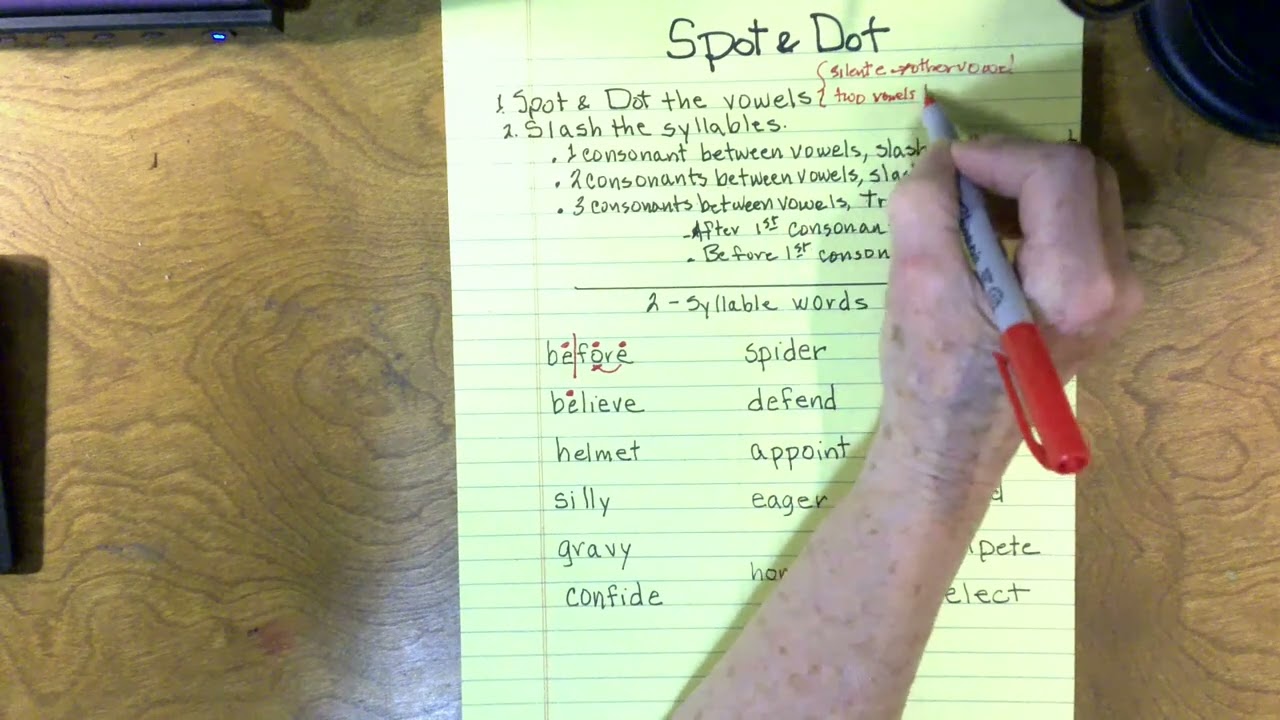 Spot & Dot
silent e → other vowel
1. Spot & Dot the vowels two vowels
2. Slash the syllables.
. 1 consonant between vowels, slash
. 2 consonants between vowels, slas
. 3 consonants between vowels, Tr
- After 1st consonan
. Before 1st conson
2-Syllable words
before spider
believe defend
helmet appoint
silly eager
gravy pete
hor
confide elect